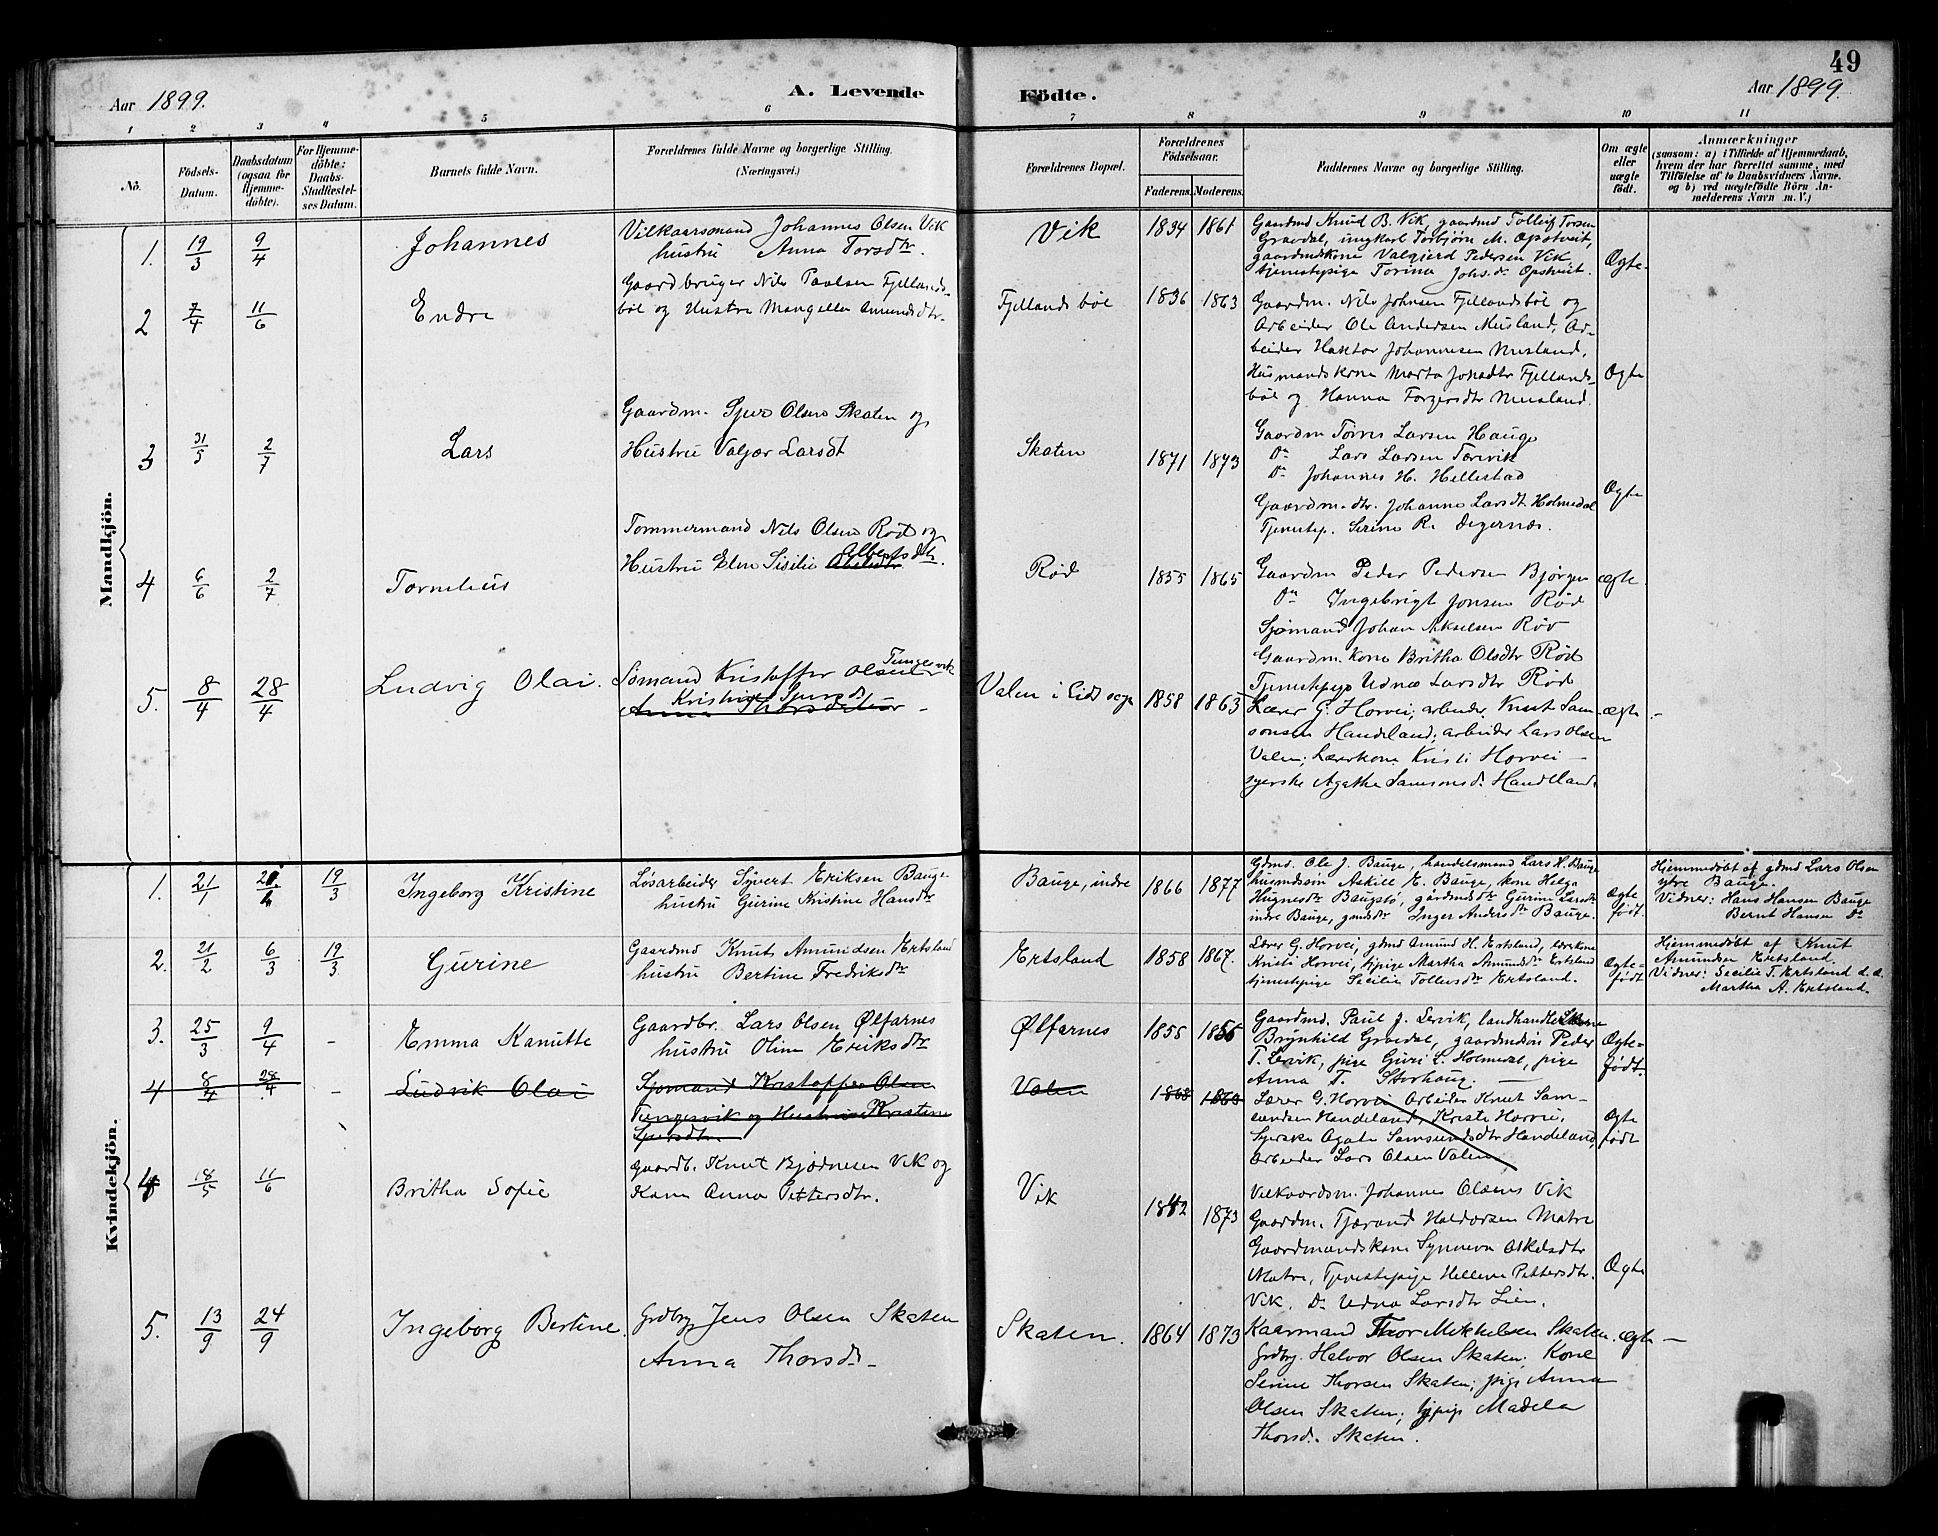 49
Aar 1899. A. Levende Födte. Aar 1899.
1 2 3 4 5 6 7 8 9 10 11
No. Födsels-Datum. Daabsdatum (ogsaa for Hjemme-döbte). For Hjemme-döbte: Daabs-Stadfæstel-ses Datum. Barnets fulde Navn. Forældrenes fulde Navne og borgerlige Stilling. (Næringsvei.) Forældrenes Bopæl. Forældrenes Födselsaar. Faderens. Moderens. Faddernes Navne og borgerlige Stilling. Om ægte eller uægte födt. Anmærkninger (saasom: a) i Tilfælde af Hjemmedaab, hvem der har forrettet samme, med Tilföielse af to Daabsvidners Navne, og b) ved uægtefödte Börn An-melderens Navn m. V.)
Mandkjön.
1. 19/3 9/4 Johannes
Vilkaarsmand Johannes Olsen Vik
hustru Anna Torsdtr.
Vik 1834 1861
Gaardmd Knud B. Vik, gaardmd Tolleif Torsen
Gravdal, ungkarl Torbjørn M. Opstveit,
gaardmdskone Valgjerd Pedersen Vik
tjenestepige Torina Johs.dr Opstveit.
Ægte
2 7/4 11/6 Endre
Gaardbruger Nils Paulsen Fjellands-
bøl og Hustru Mangella Amundsdtr.
Fjellandsbøl 1836 1863
Gaardm. Nils Johnsen Fjellandsbøl og
Arbeider Ole Andersen Musland, Ar-
beider Haktor Johannesen Musland,
Husmandskone Marta Jonsdtr Fjellands-
bøl og Hanna Torgersdtr Musland.
Ægte
3 31/5 2/7 Lars
Gaardm. Sjur Olsen Skaten og
Hustru Valjær Larsdt
Skaten 1871 1873
Gaardm Torres Larsen Hauge
Do Lars Larsen Tærevik
Do Johannes H. Hellestad
Gaardm.dtr. Johanne Larsdt Holmedal
Tjenestep. Serine R. Degernæs.
Ægte
4 6/6 2/7 Tornelius
Tømmermand Nils Olsen Rød og
Hustru Elen Sisilie Albertsdtr.
Rød 1855 1865
Gaardm Peder Pedersen Bjørgen
Do Ingebrigt Jonsen Rød
Sjømand Johan Akselsen Røv
Gaardm. kone Britha Olsdtr Rød
Tjenestepige Udna Larsdtr Rød
ægte
5. 8/4 28/4 Ludvig Olai.
Sømand Kristoffer Olsen Tungesvik
Kristine Sjursd.
Anna Thorsdatter
Valen i Eids sogn 1858 1863
Lærer G. Horvei, arbeider Knut Sam-
sonsen Handeland; arbeider Lars Olsen
Valen; Lærerkone Kristi Horvei
syerske Agathe Samsonsd. Handeland.
ægte
Kvindekjön.
1. 21/1 19/3 Ingeborg Kristine
Løsarbeider Syvert Eriksen Bauge
hustru Gurine Kristine Hansdtr
Bauge, indre 1866 1877
Gdmd. Ole J. Bauge, handelsmand Lars H. Bauge
husmdssøn Askill E. Bauge, kone Helga
Hugnesdtr Baugstø, gårdmdsdtr Gurine Larsdtr
indre Bauge, gmdsdtr Inger Andersdtr Bauge.
Ægte
født.
Hjemmedøbt af gdmd Lars Olsen
ytre Bauge.
Vidner: Hans Hansen Bauge
Bernt Hansen do
2. 21/2 6/3 19/3 Gurine
Gaardmd Knut Amundsen Ertsland
hustru Bertine Fredriksdtr
Ertsland 1858 1867.
Lærer G. Horvei, gdmd Amund H. Ertsland, lærerkone
Kristi Horvei, tjpige Martha Amundsdtr Ertsland
tjenestepige Secilie Tollefsdtr Ertsland.
Ægte-
født
Hjemmedøbt af Knut
Amundsen Ertsland.
Vidner: Secilie T. Ertsland d. æ.
Martha A. Ertsland.
3. 25/3 9/4 - Emma Kanutte
Gaardbr. Lars Olsen Ølfarnes
hustru Oline Eriksdtr
Ølfarnes 1855
Gaardmd. Paul J. Lervik, landhandlerkone
Brynhild Gravdal, gaardmdssøn Peder
T. Lervik, pige Guri L. Holmedal, pige
Anna T. Storhaug.
Ægte-
født.
4 8/4 28/4 - Ludvik Olai
Sjømand Kristoffer Olsen
Tungesvik og Hustru Kristine
Sjursdtr.
Valen 1868 1863
Lærer G. Horvei Arbeider Knut Sam-
sonsen Handeland, Kriste Horvei,
Syerske Agate Samsunsdtr Handeland,
Arbeider Lars Olsen Valen
Ægte
født
4 18/5 11/6 Britha Sofie
Gaardb. Knut Bjødnesen Vik og
Kone Anna Pettersdtr.
Vik 1873
Vilkaardsm. Johannes Olsens Vik
Gaardm. Tjærand Haldorsen Matre
Gaardmandskone Synneva Askelsdtr
Matre, Tjenestepige Hellene Pettersdtr.
Vik. Do Udna Larsdtr Lien.
Ægte
5. 13/9 24/9 Ingeborg Bertine.
Grdbrg Jens Olsen Skaten
Anna Thorsdr
Skaten. 1864 1873
Kaarmand Thor Mikkelsen Skaten.
Grdbrg. Halvor Olsen Skaten; Kone
Serine Thorsen Skaten; pige Anna
Olsen Skaten; tjpige Madela
Thorsd. Skaten.
ægte